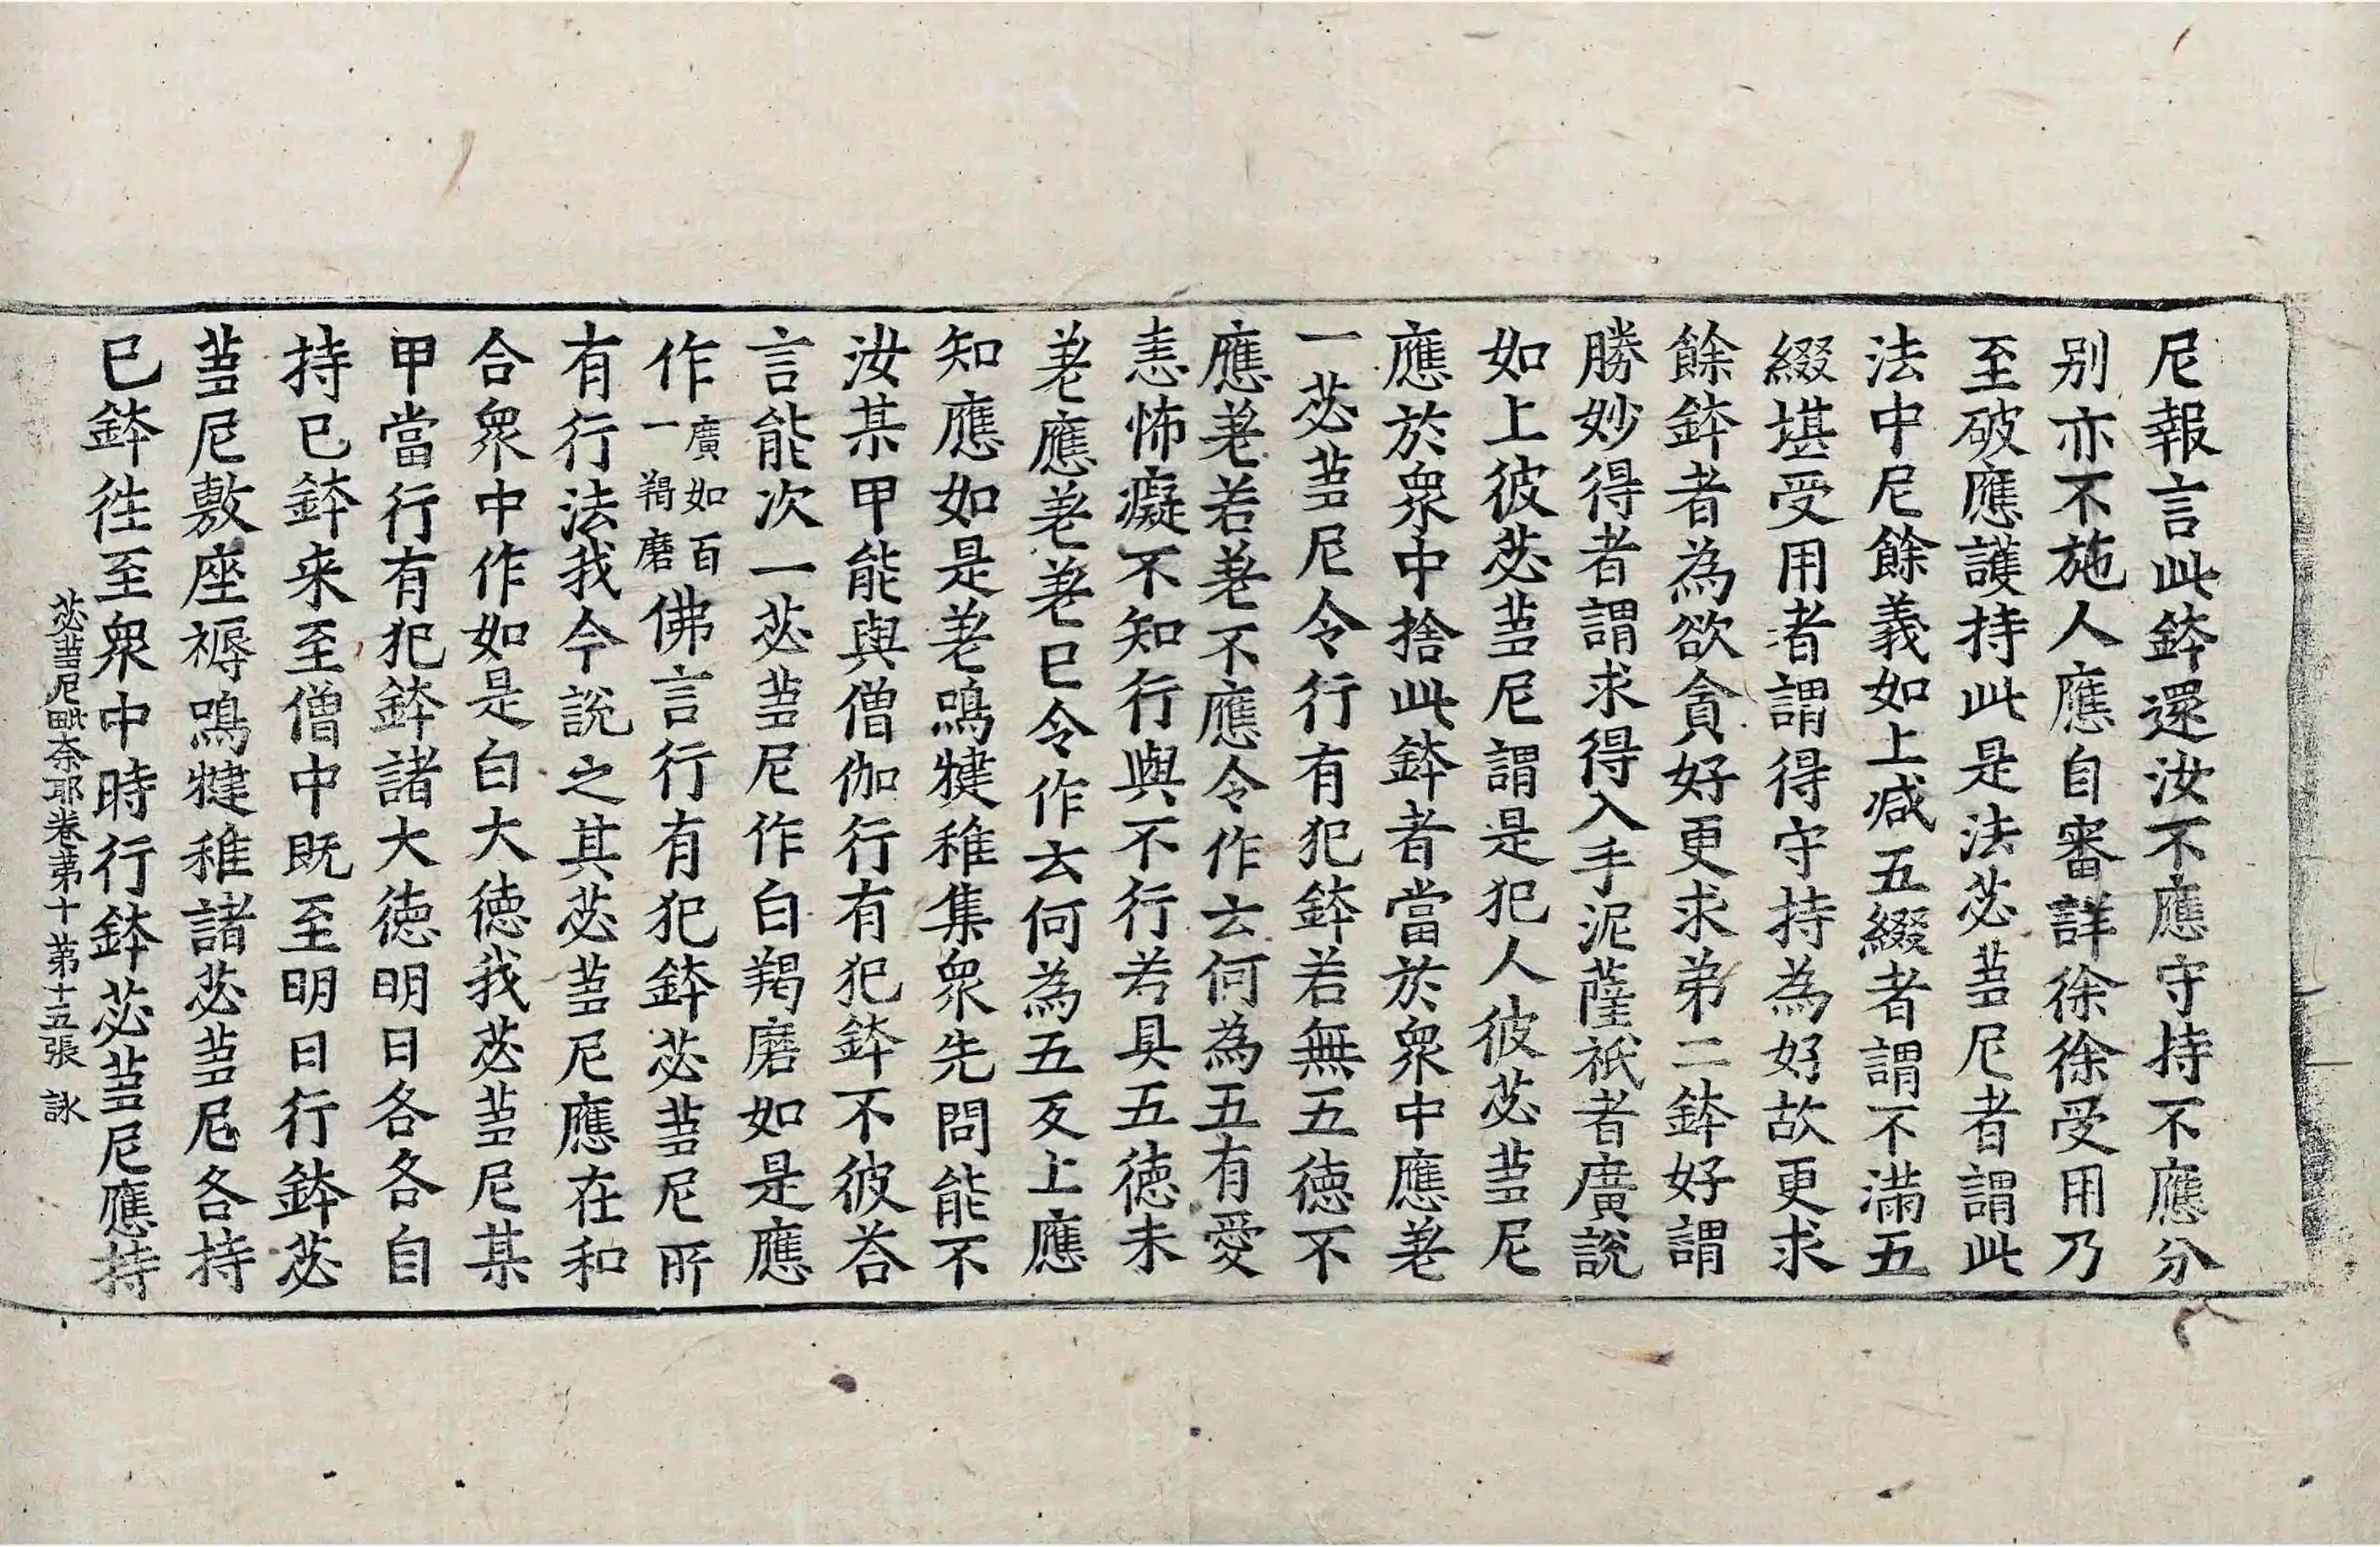 尼報言此鉢還汝不應守持不應分
别亦不施人應自審詳徐徐受用乃
至破應護持此是法苾蒭尼者謂此
法中尼餘義如上减五綴者謂不滿五
綴堪受用者謂得守持為好故更求
餘鉢者為欲貪好更求弟二鉢好謂
勝妙得者謂求得入手泥薩祇者廣說
如上彼苾蒭尼謂是犯人彼苾蒭尼
應於衆中捨此鉢者當於衆中應差
一苾蒭尼令行有犯鉢若無五徳不
應差若差不應令作云何為五有愛
恚怖癡不知行與不行若具五徳未
差應差差已令作云何為五反上應
知應如是差鳴犍稚集衆先問能不
汝某甲能與僧伽行有犯鉢不彼荅
言能次一苾蒭尼作白羯磨如是應
作廣如百一羯磨佛言行有犯鉢苾蒭尼所
有行法我今說之其苾蒭尼應在和
合衆中作如是白大徳我苾蒭尼某
甲當行有犯鉢諸大徳明日各各自
持已鉢来至僧中既至明日行鉢苾
蒭尼敷座褥鳴犍稚諸苾蒭尼各持
已鉢徃至衆中時行鉢苾蒭尼應持
苾蒭尼毗奈耶卷苐十 苐十五張 詠